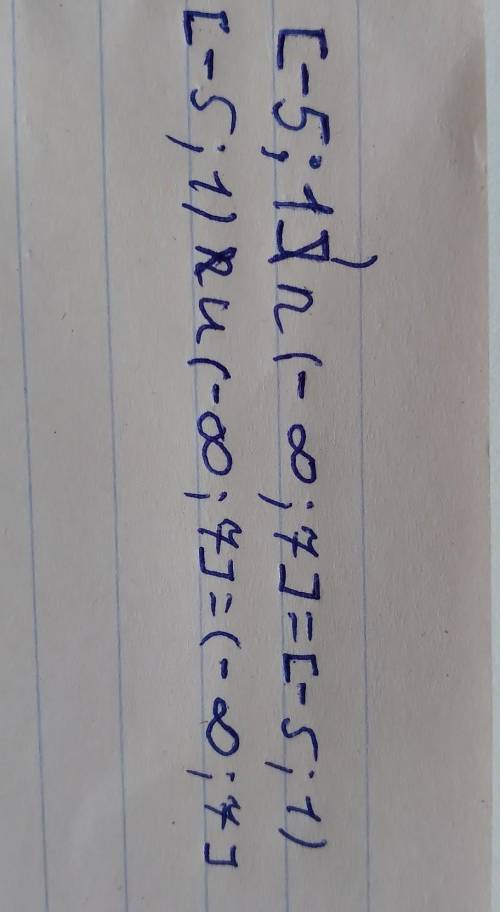 [-5; 1) ∩ (-∞; 7] = [-5; 1)
[-5; 1) ∪ (-∞; 7] = (-∞; 7]